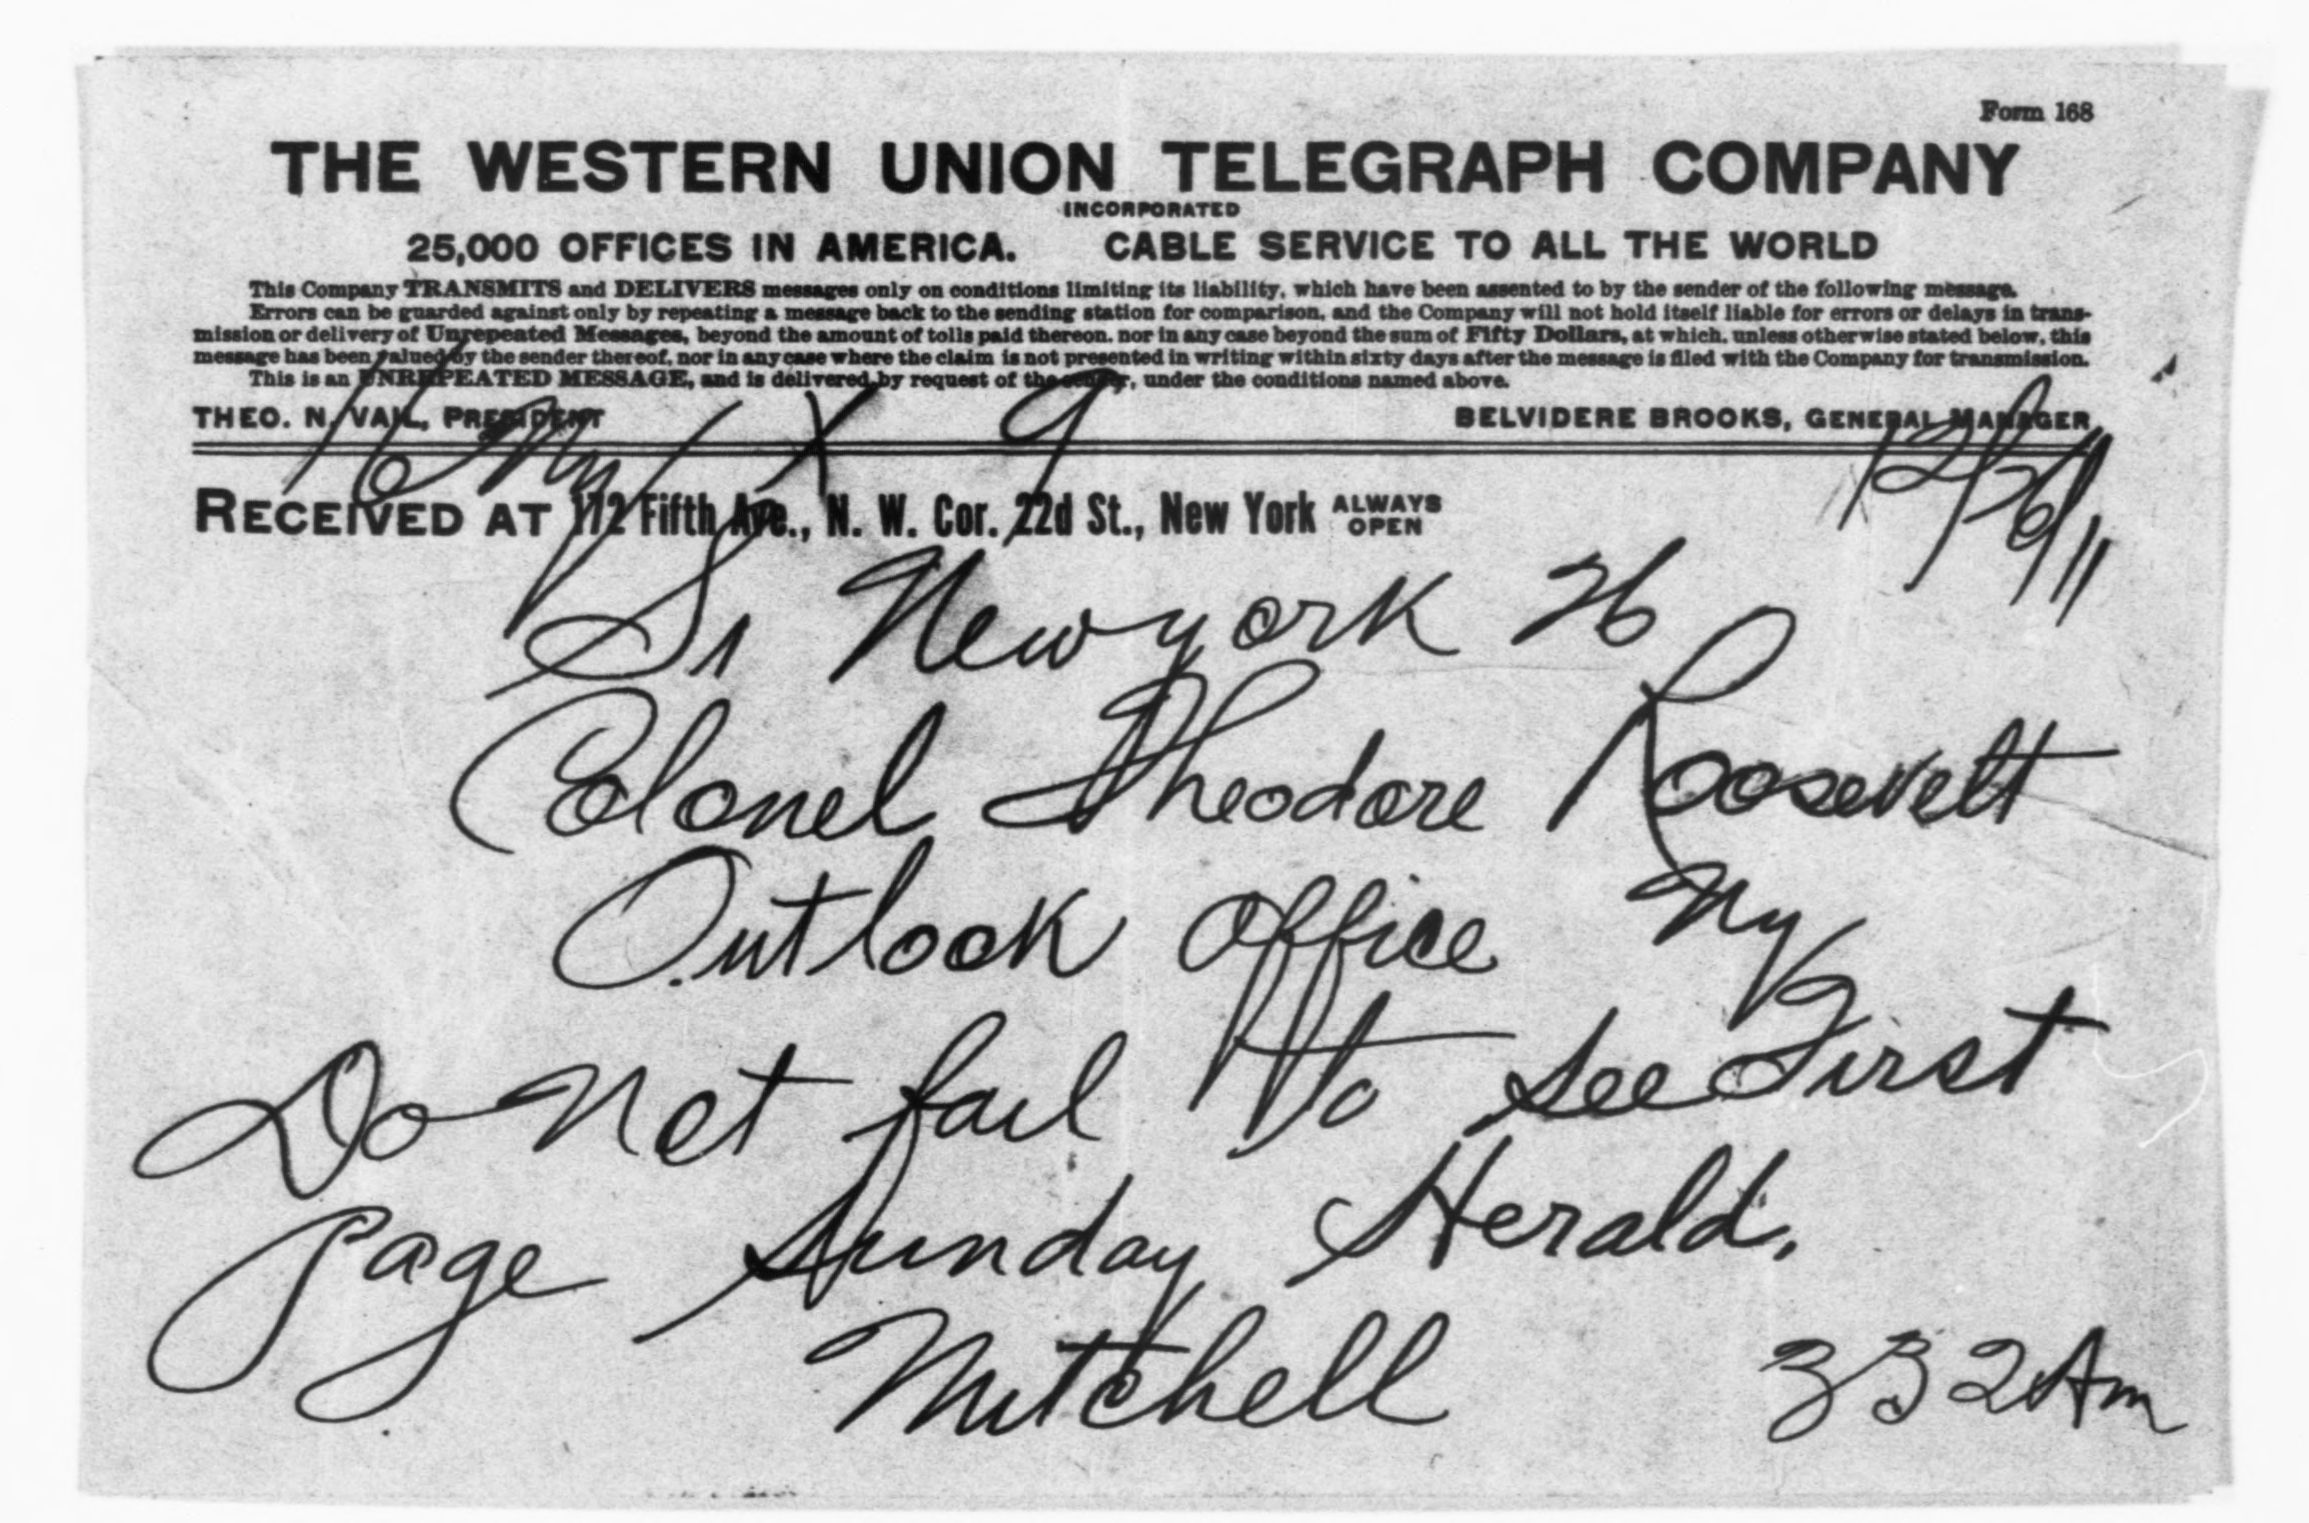 Form 168
THE WESTERN UNION TELEGRAPH COMPANY
INCORPORATED
25,000 OFFICES IN AMERICA. CABLE SERVICE TO ALL THE WORLD
This Company TRANSMITS and DELIVERS messages only on conditions limiting its liability, which have been assented to by the sender of the following message.
Errors can be guarded against only by repeating a message back to the sending station for comparison, and the Company will not hold itself liable for errors or delays in trans-
mission or delivery of Unrepeated Messages, beyond the amount of tolls paid thereon, nor in any case beyond the sum of Fifty Dollars, at which, unless otherwise stated below, this
message has been valued by the sender thereof, nor in any case where the claim is not presented in writing within sixty days after the message is filed with the Company for transmission.
This is an UNREPEATED MESSAGE, and is delivered by request of the sender, under the conditions named above.
THEO. N. VAIL, PRESIDENT BELVIDERE BROOKS, GENERAL MANAGER
X 9 12/26/11
RECEIVED AT 172 Fifth Ave., N. W. Cor. 22d St., New York ALWAYS OPEN
New york 26
Colonel Theodore Roosevelt
Outlook office Ny
Do not fail to see First
Page Sunday Herald.
Mitchell 332 Am